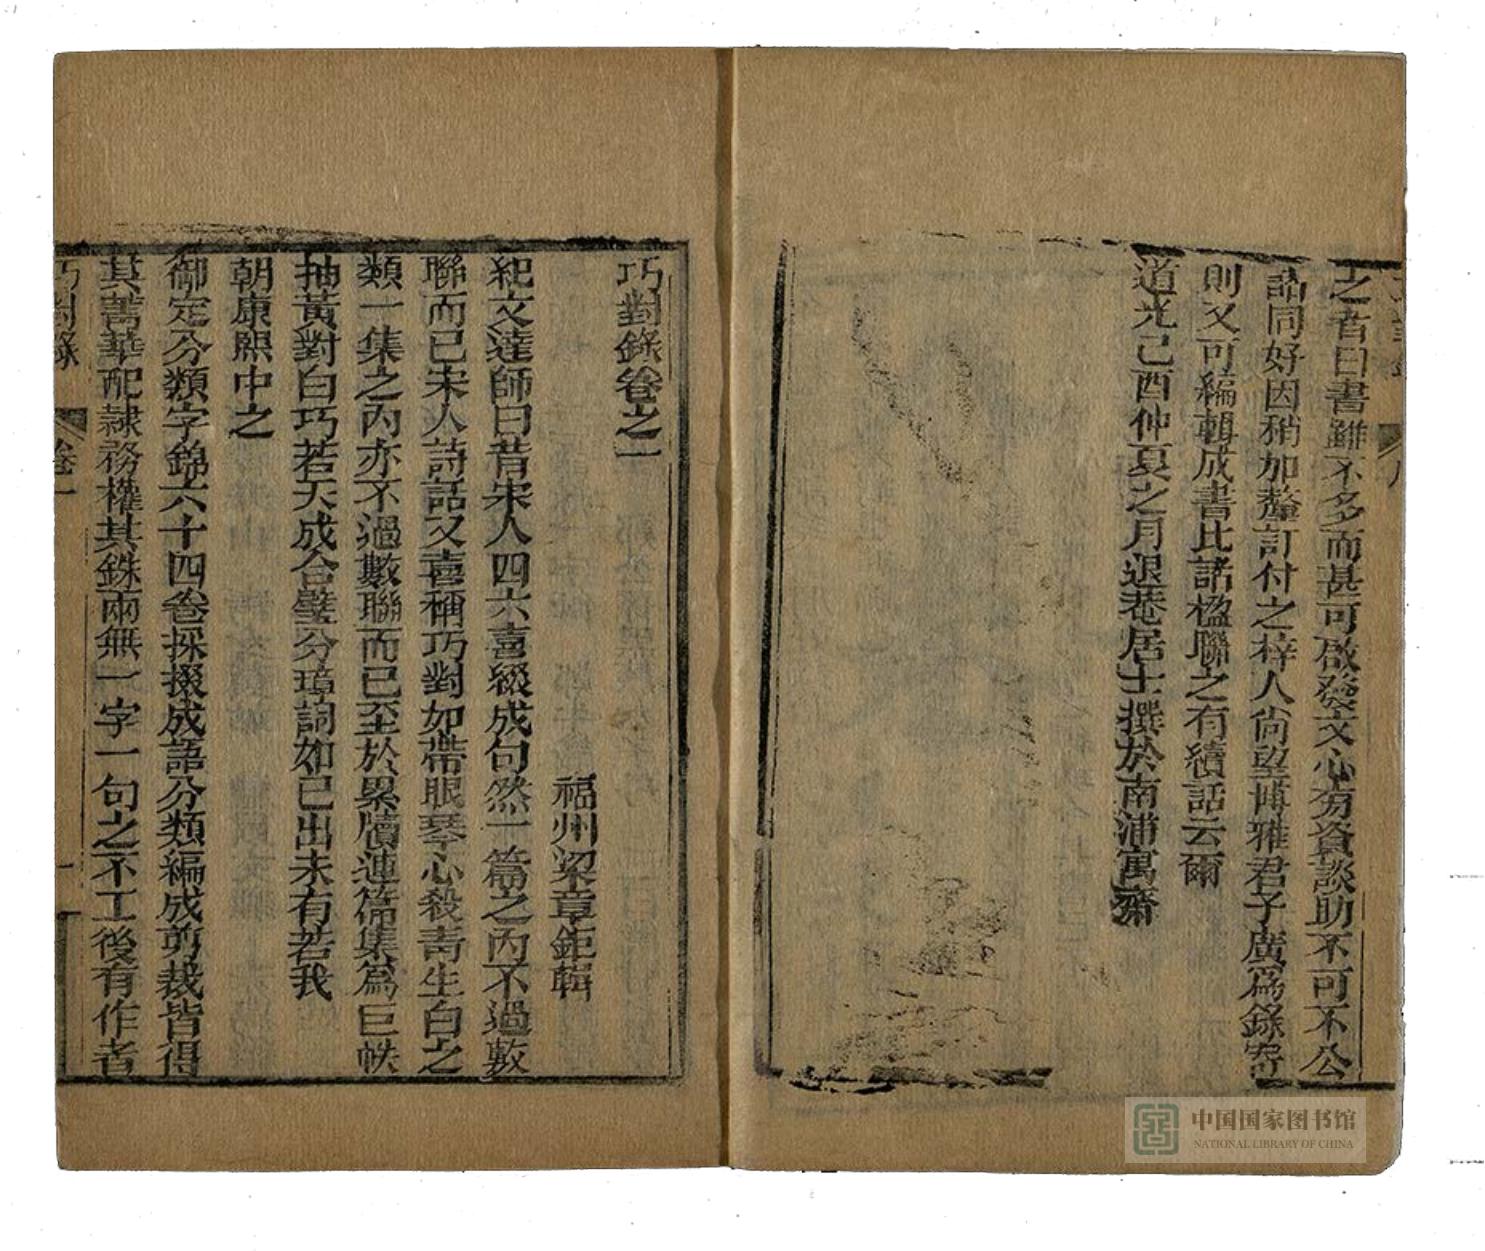 之者曰書雖不多而甚可啟發文心旁資談助不可不公
諸同好因稍加釐訂付之梓人尚望博雅君子廣為錄寄
則又可編輯成書比諸楹聯之有續話云爾
道光己酉仲夏之月退菴居士撰於南浦寓齋
巧對錄卷之一
福州梁章鉅輯
紀文達師曰昔宋人四六喜綴成句然一篇之內不過數
聯而已宋人詩話又喜稱巧對如帶眼琴心殺青生白之
類一集之內亦不過數聯而已至於累牘連篇集為巨帙
抽黃對白巧若天成合璧分璋詞如己出未有若我
朝康熙中之
御定分類字錦六十四卷採掇成語分類編成剪裁皆得
其菁華配隸務權其銖兩無一字一句之不工後有作者
巧對錄 卷一 一
中国国家图书馆
NATIONAL LIBRARY OF CHINA